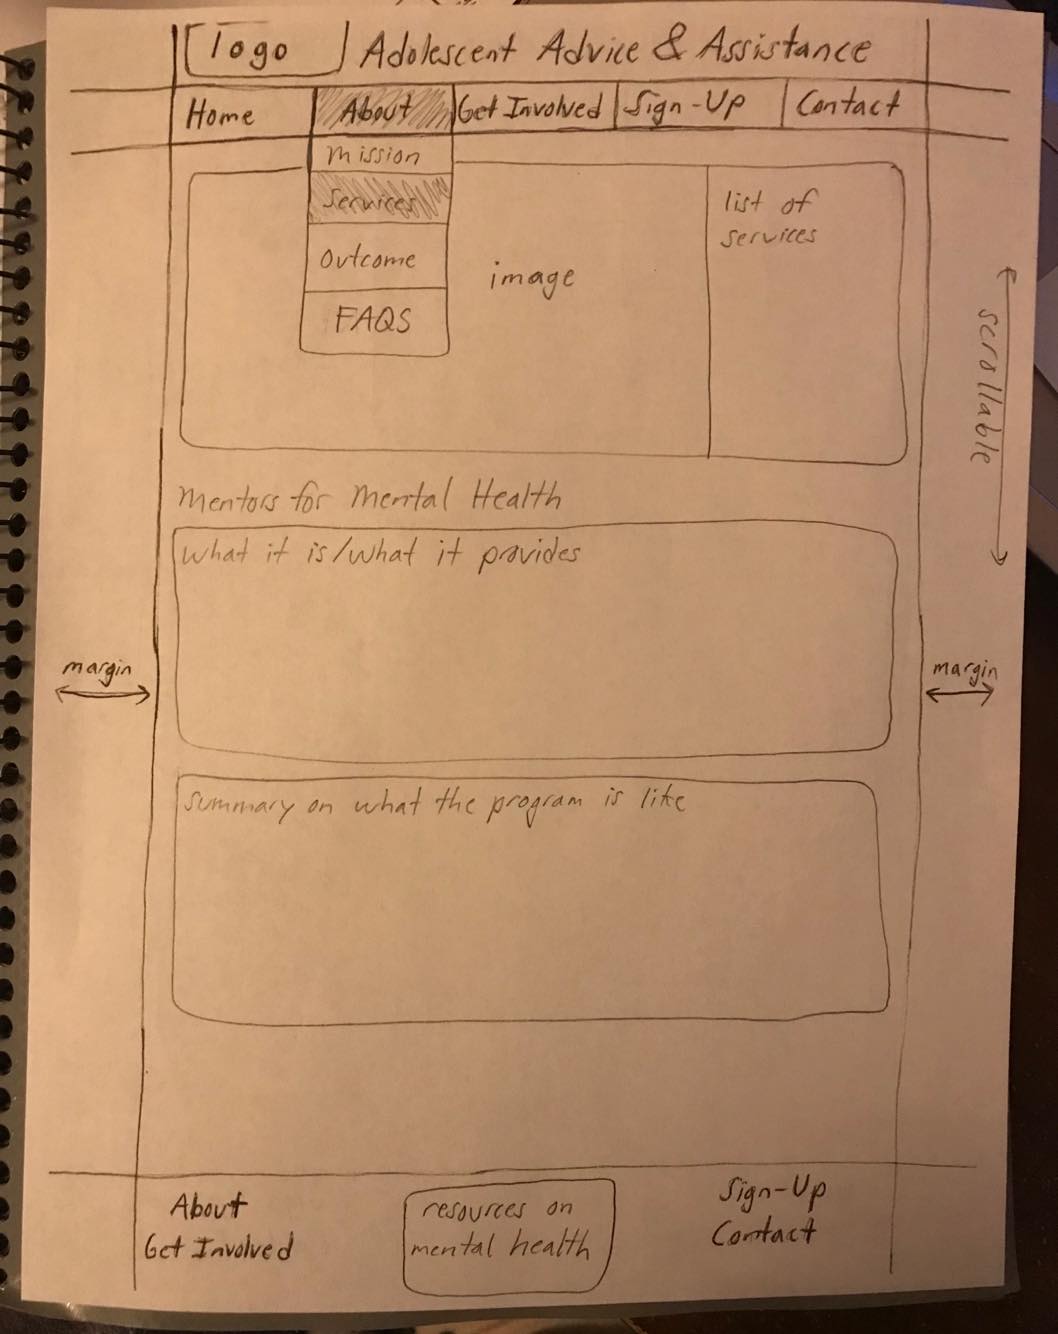 logo
Adolescent Advice & Assistance
Home
About
Get Involved
Sign-Up
Contact
mission
services
outcome
FAQS
image
list of
services
scrollable
Mentors for Mental Health
what it is/what it provides
margin
margin
summary on what the program is like
About
Get Involved
resources on
mental health
Sign-Up
Contact